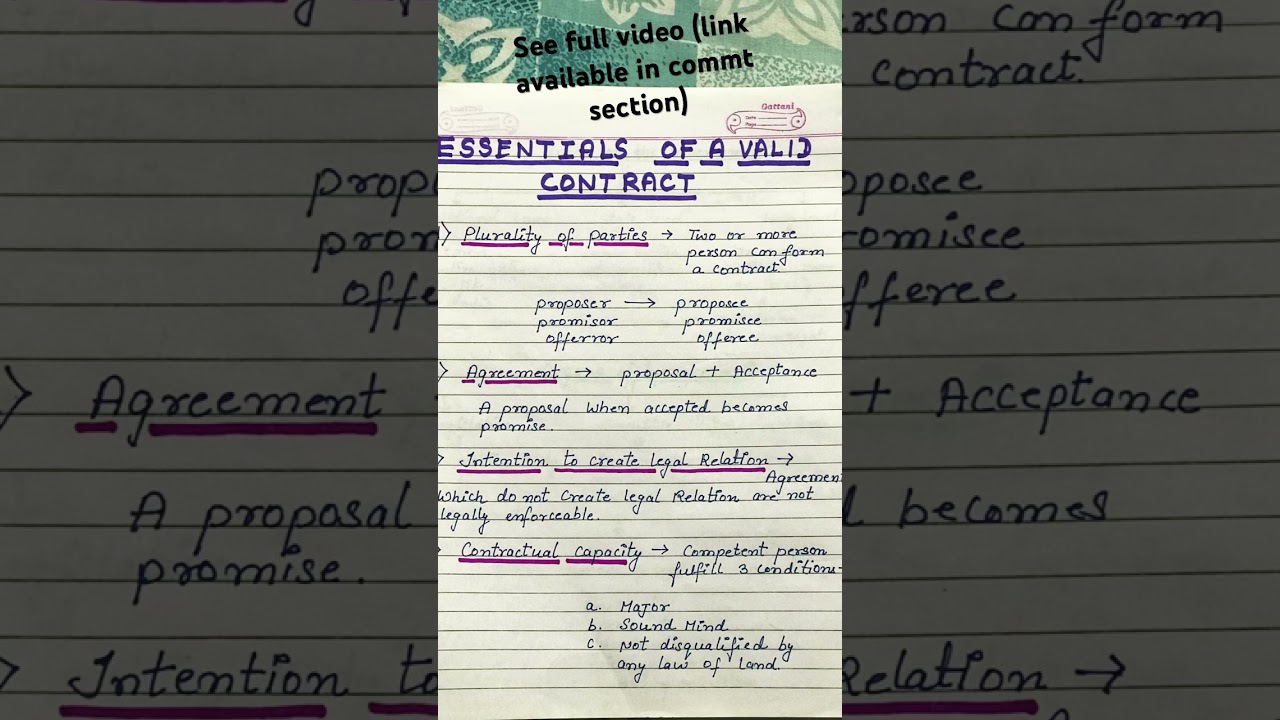 See full video (link
available in commt
section)
Gattani
ESSENTIALS OF A VALID
CONTRACT
Plurality of parties → Two or more
person can form
a contract.
proposer → proposee
promisor promisee
offerror offeree
Agreement → proposal + Acceptance
A proposal when accepted becomes
promise.
Intention to create legal Relation →
Agreement
which do not create legal Relation are not
legally enforceable.
Contractual capacity → Competent person
fulfill 3 conditions-
a. Major
b. Sound Mind
c. Not disqualified by
any law of land.